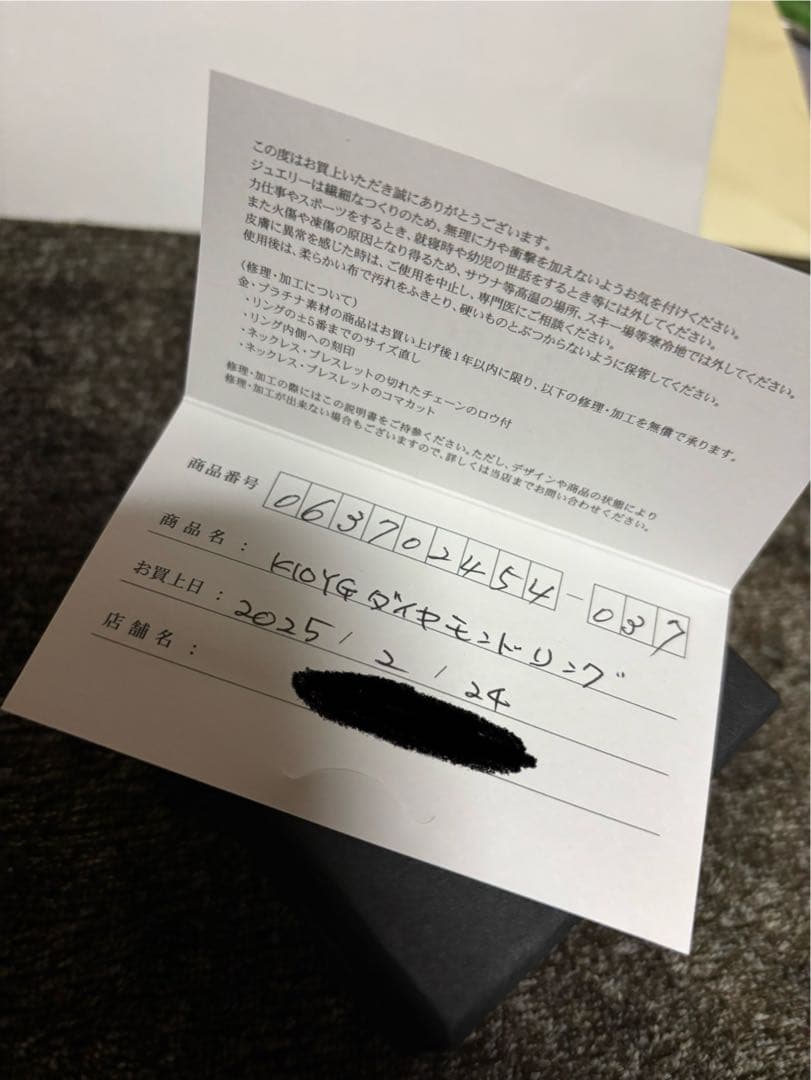 この度はお買上いただき誠にありがとうございます。
ジュエリーは繊細なつくりのため、無理に力や衝撃を加えないようお気を付けください。
力仕事やスポーツをするとき、就寝時や幼児の世話をするとき等には外してください。
また火傷や凍傷の原因となり得るため、サウナ等高温の場所、スキー場等寒冷地では外してください。
皮膚に異常を感じた時は、ご使用を中止し、専門医にご相談ください。
使用後は、柔らかい布で汚れをふきとり、硬いものとぶつからないように保管してください。
(修理・加工について)
金・プラチナ素材の商品はお買い上げ後1年以内に限り、以下の修理・加工を無償で承ります。
・リングの±5番までのサイズ直し
・リング内側への刻印
・ネックレス・ブレスレットの切れたチェーンのロウ付
・ネックレス・ブレスレットのコマカット
修理・加工の際にはこの説明書をご持参ください。ただし、デザインや商品の状態により
修理・加工が出来ない場合もございますので、詳しくは当店までお問い合わせください。
商品番号 063702454-037
商品名: K10YGダイヤモンドリング
お買上日: 2025/2/24
店舗名: